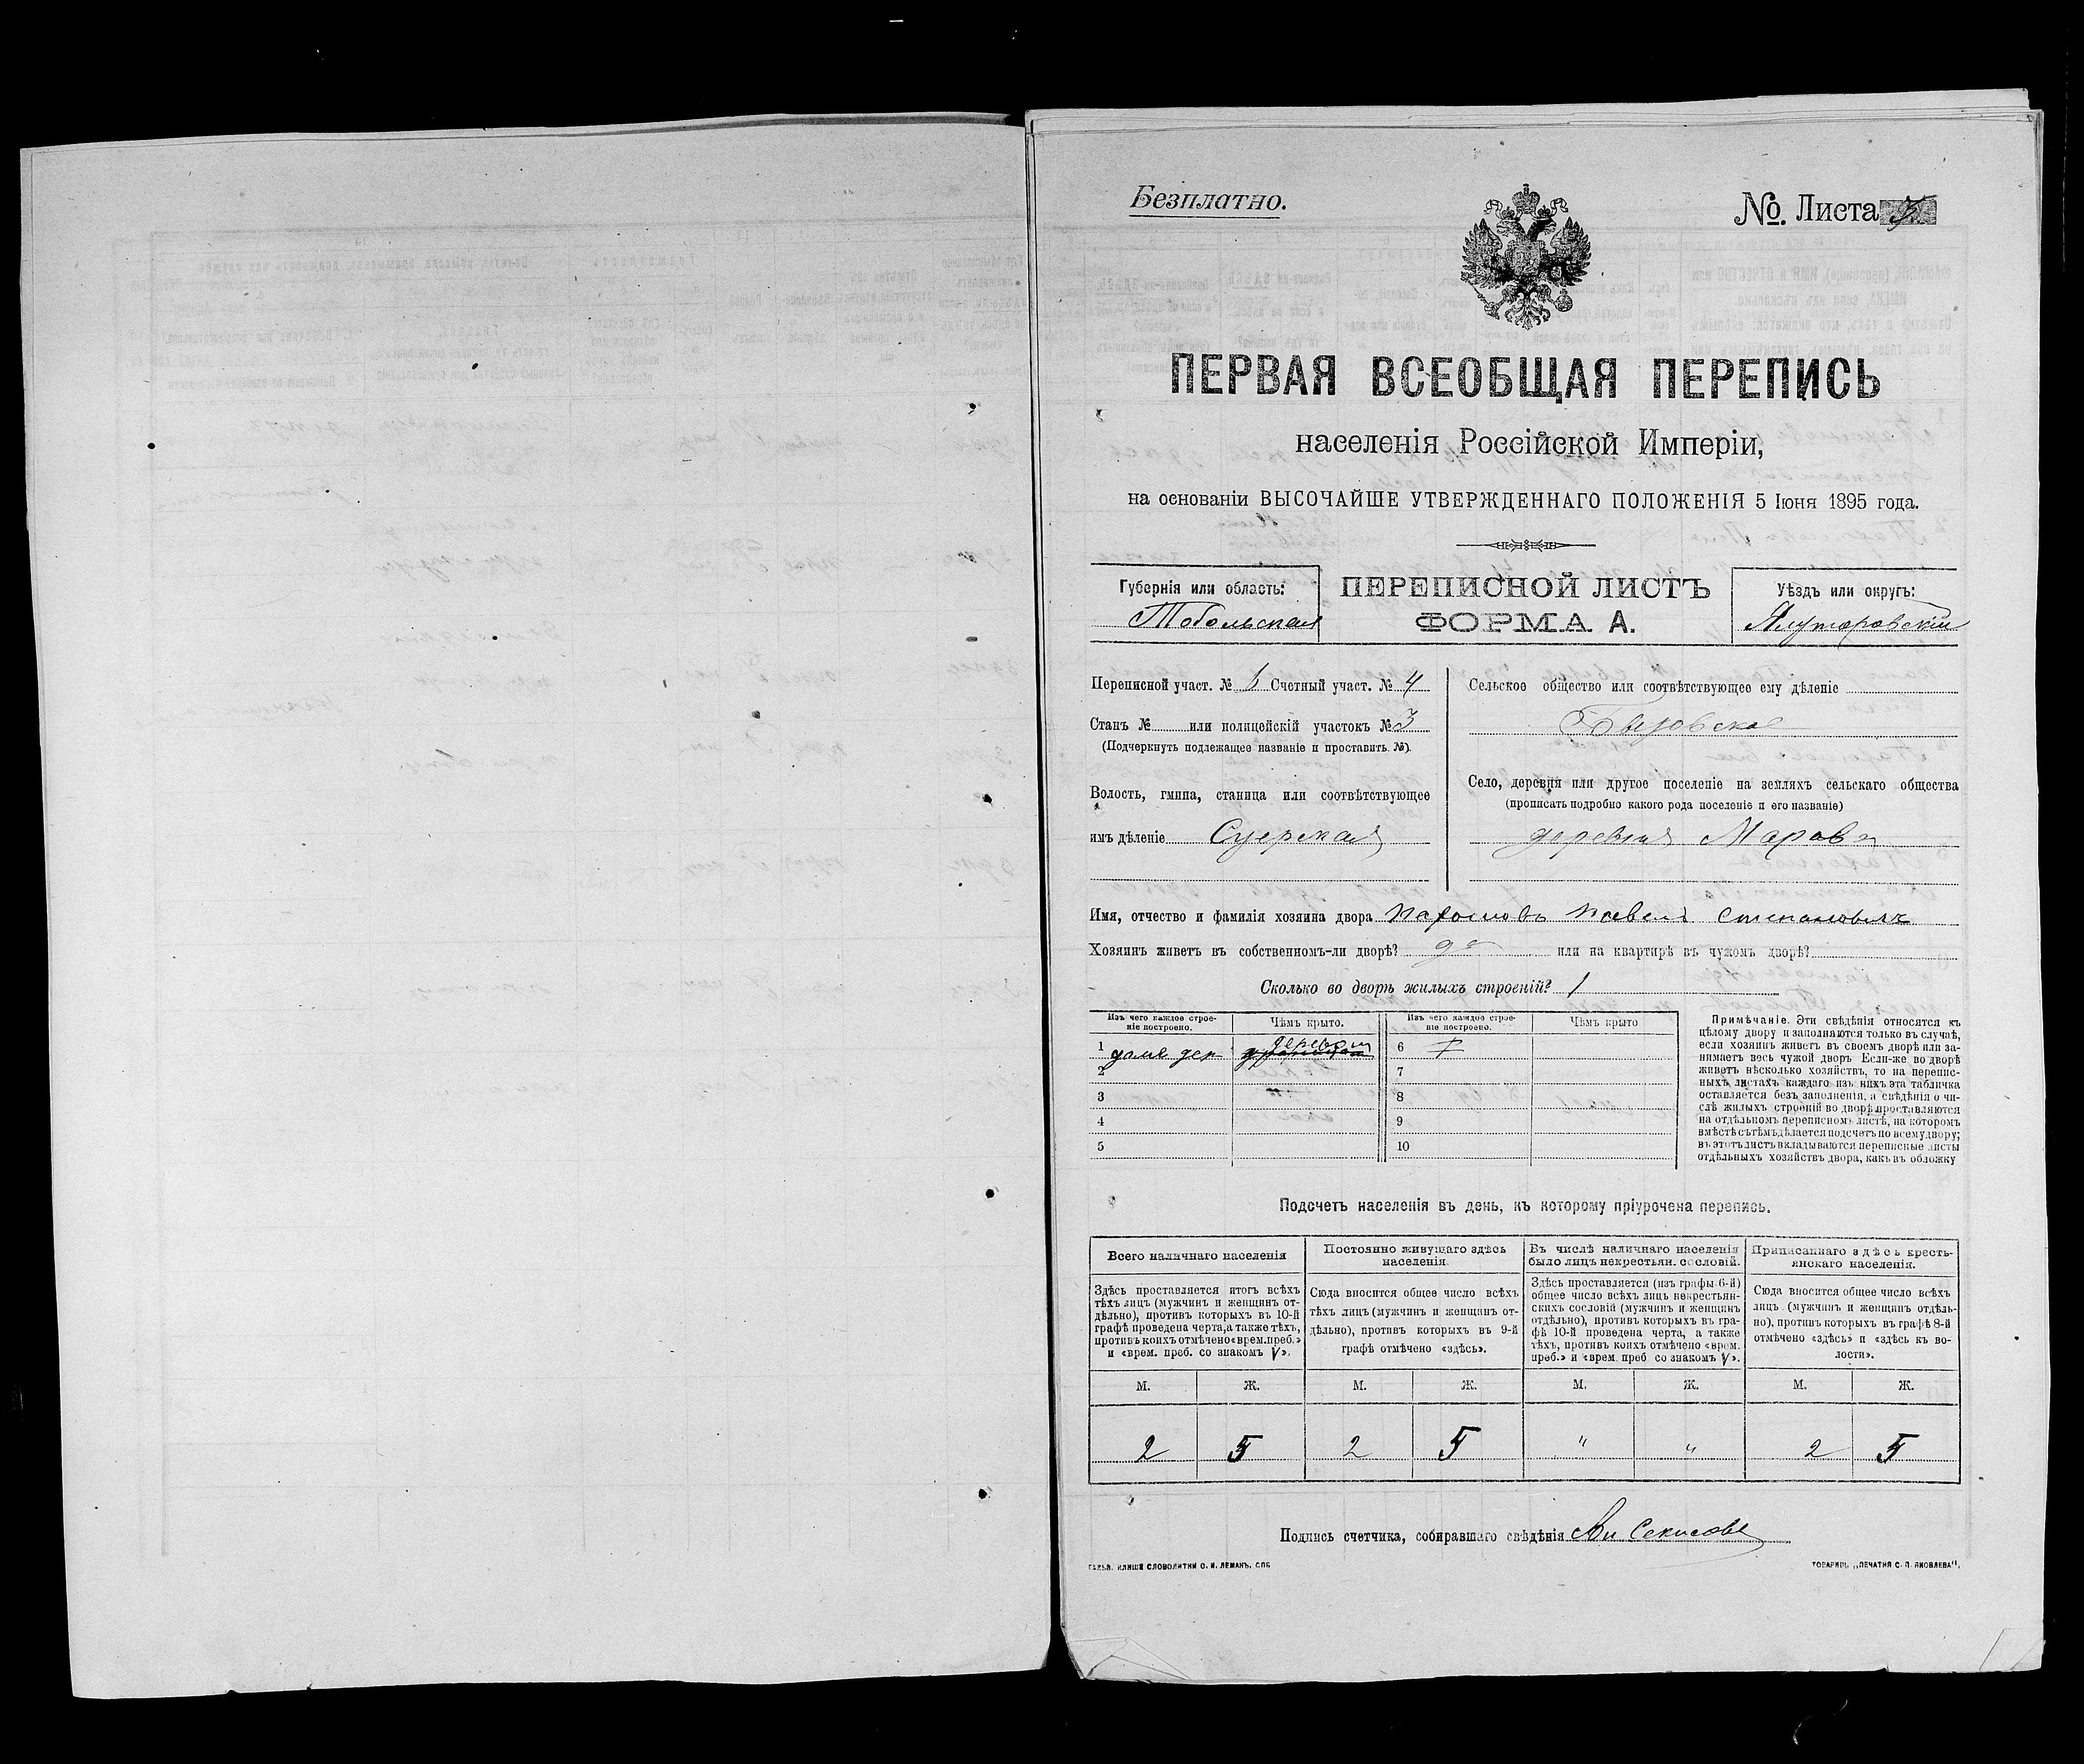 Безплатно.
№ Листа
ПЕРВАЯ ВСЕОБЩАЯ ПЕРЕПИСЬ
населенія Россійской Имперіи,
на основаніи ВЫСОЧАЙШЕ УТВЕРЖДЕННАГО ПОЛОЖЕНІЯ 5 Іюня 1895 года.
Губернія или область:
Тобольская
ПЕРЕПИСНОЙ ЛИСТЪ
ФОРМА А.
Уѣздъ или округъ:
Ялуторовскій
Переписной участ. № Счетный участ. № 4
Станъ № или полицейскій участокъ № 3
(Подчеркнуть подлежащее названіе и проставить №).
Волость, гмина, станица или соотвѣтствующее
имъ дѣленіе Суерская
Сельское общество или соотвѣтствующее ему дѣленіе
Село, деревня или другое поселеніе на земляхъ сельскаго общества
(прописать подробно какого рода поселеніе и его названіе)
деревня Марова
Имя, отчество и фамилія хозяина двора Пахомовъ Павелъ Степановичъ
Хозяинъ живетъ въ собственномъ-ли дворѣ? да или на квартирѣ въ чужомъ дворѣ?
Сколько во дворѣ жилыхъ строеній? 1
Изъ чего каждое строе-
ніе построено.
Чѣмъ крыто.
Изъ чего каждое строе-
ніе построено.
Чѣмъ крыто
1 домъ дер деревом
2
3
4
5
6
7
8
9
10
Примѣчаніе. Эти свѣдѣнія относятся къ
цѣлому двору и заполняются только въ случаѣ,
если хозяинъ живетъ въ своемъ дворѣ или за-
нимаетъ весь чужой дворъ Если-же во дворѣ
живетъ нѣсколько хозяйствъ, то на перепис-
ныхъ листахъ каждаго изъ нихъ эта табличка
оставляется безъ заполненія, а свѣдѣнія о чи-
слѣ жилыхъ строеній во дворѣ проставляются
на отдѣльномъ переписномъ листѣ, на которомъ
вмѣстѣ съ тѣмъ дѣлается подсчетъ по всему двору;
въ этотъ листъ вкладываются переписные листы
отдѣльныхъ хозяйствъ двора, какъ въ обложку
Подсчетъ населенія въ день, къ которому пріурочена перепись.
Всего наличнаго населенія
Здѣсь проставляется итогъ всѣхъ
тѣхъ лицъ (мужчинъ и женщинъ от-
дѣльно), противъ которыхъ въ 10-й
графѣ проведена черта, а также тѣхъ,
противъ коихъ отмѣчено «врем. преб.»
и «врем. преб. со знакомъ V».
Постоянно живущаго здѣсь
населенія.
Сюда вносится общее число всѣхъ
тѣхъ лицъ (мужчинъ и женщинъ от-
дѣльно), противъ которыхъ въ 9-й
графѣ отмѣчено «здѣсь».
Въ числѣ наличнаго населенія
было лицъ некрестьян. сословій.
Здѣсь проставляется (изъ графы 6-й)
общее число всѣхъ лицъ некрестьян-
скихъ сословій (мужчинъ и женщинъ
отдѣльно), противъ которыхъ въ гра-
фѣ 10-й проведена черта, а также
тѣхъ, противъ коихъ отмѣчено «врем.
преб.» и «врем. преб. со знакомъ V».
Приписаннаго здѣсь кресть-
янскаго населенія.
Сюда вносится общее число всѣхъ
лицъ (мужчинъ и женщинъ отдѣль-
но), противъ которыхъ въ графѣ 8-й
отмѣчено «здѣсь» и «здѣсь къ во-
лости».
М. Ж. М. Ж. М. Ж. М. Ж.
2 5 2 5 " " 2 5
Подпись счетчика, собиравшаго свѣдѣнія
ГАЛЬВ. КЛИШЕ СЛОВОЛИТНИ О. И. ЛЕМАНЪ, СПБ
ТОВАРИЩ. „ПЕЧАТНЯ С. П. ЯКОВЛЕВА".